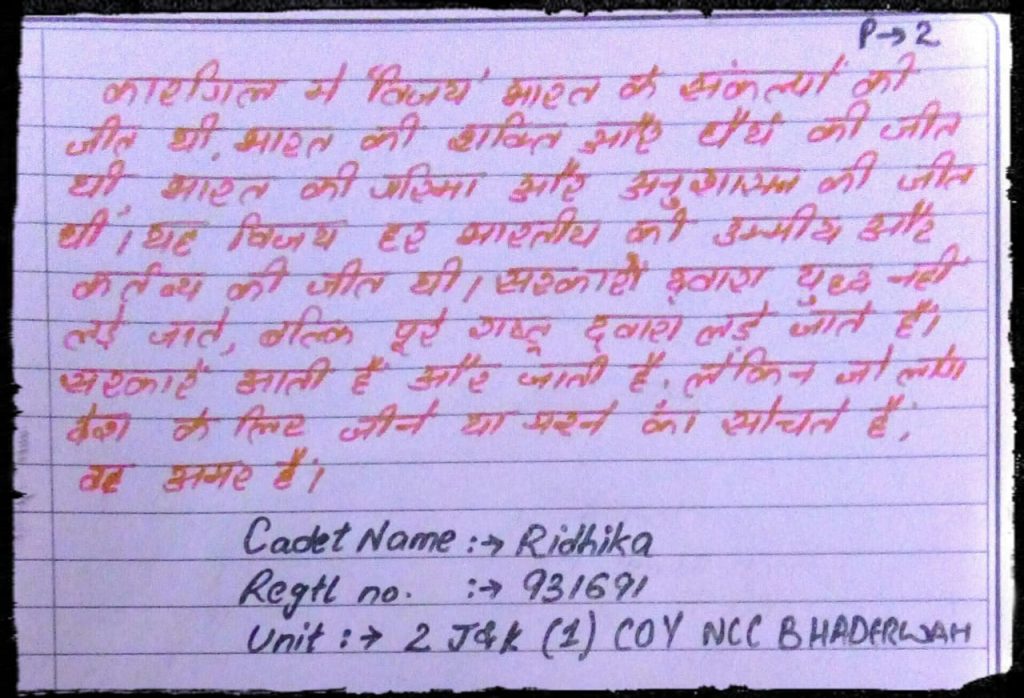 P→2
कारगिल में 'विजय' भारत के संकल्पों की
जीत थी, भारत की शक्ति और धैर्य की जीत
थी, भारत की गरिमा और अनुशासन की जीत
थी। यह विजय हर भारतीय की उम्मीय और
कर्तव्य की जीत थी। सरकारों द्वारा युध्द नहीं
लड़े जाते, बल्कि पूरे राष्ट्र द्वारा लड़े जाते हैं।
सरकारें आती हैं और जाती है, लेकिन जो लोग
देश के लिए जीने या मरने का सोचते हैं,
वह अमर हैं।
Cadet Name :→ Ridhika
Regtl no. :→ 931691
Unit :→ 2 J&K (1) COY NCC BHADERWAH